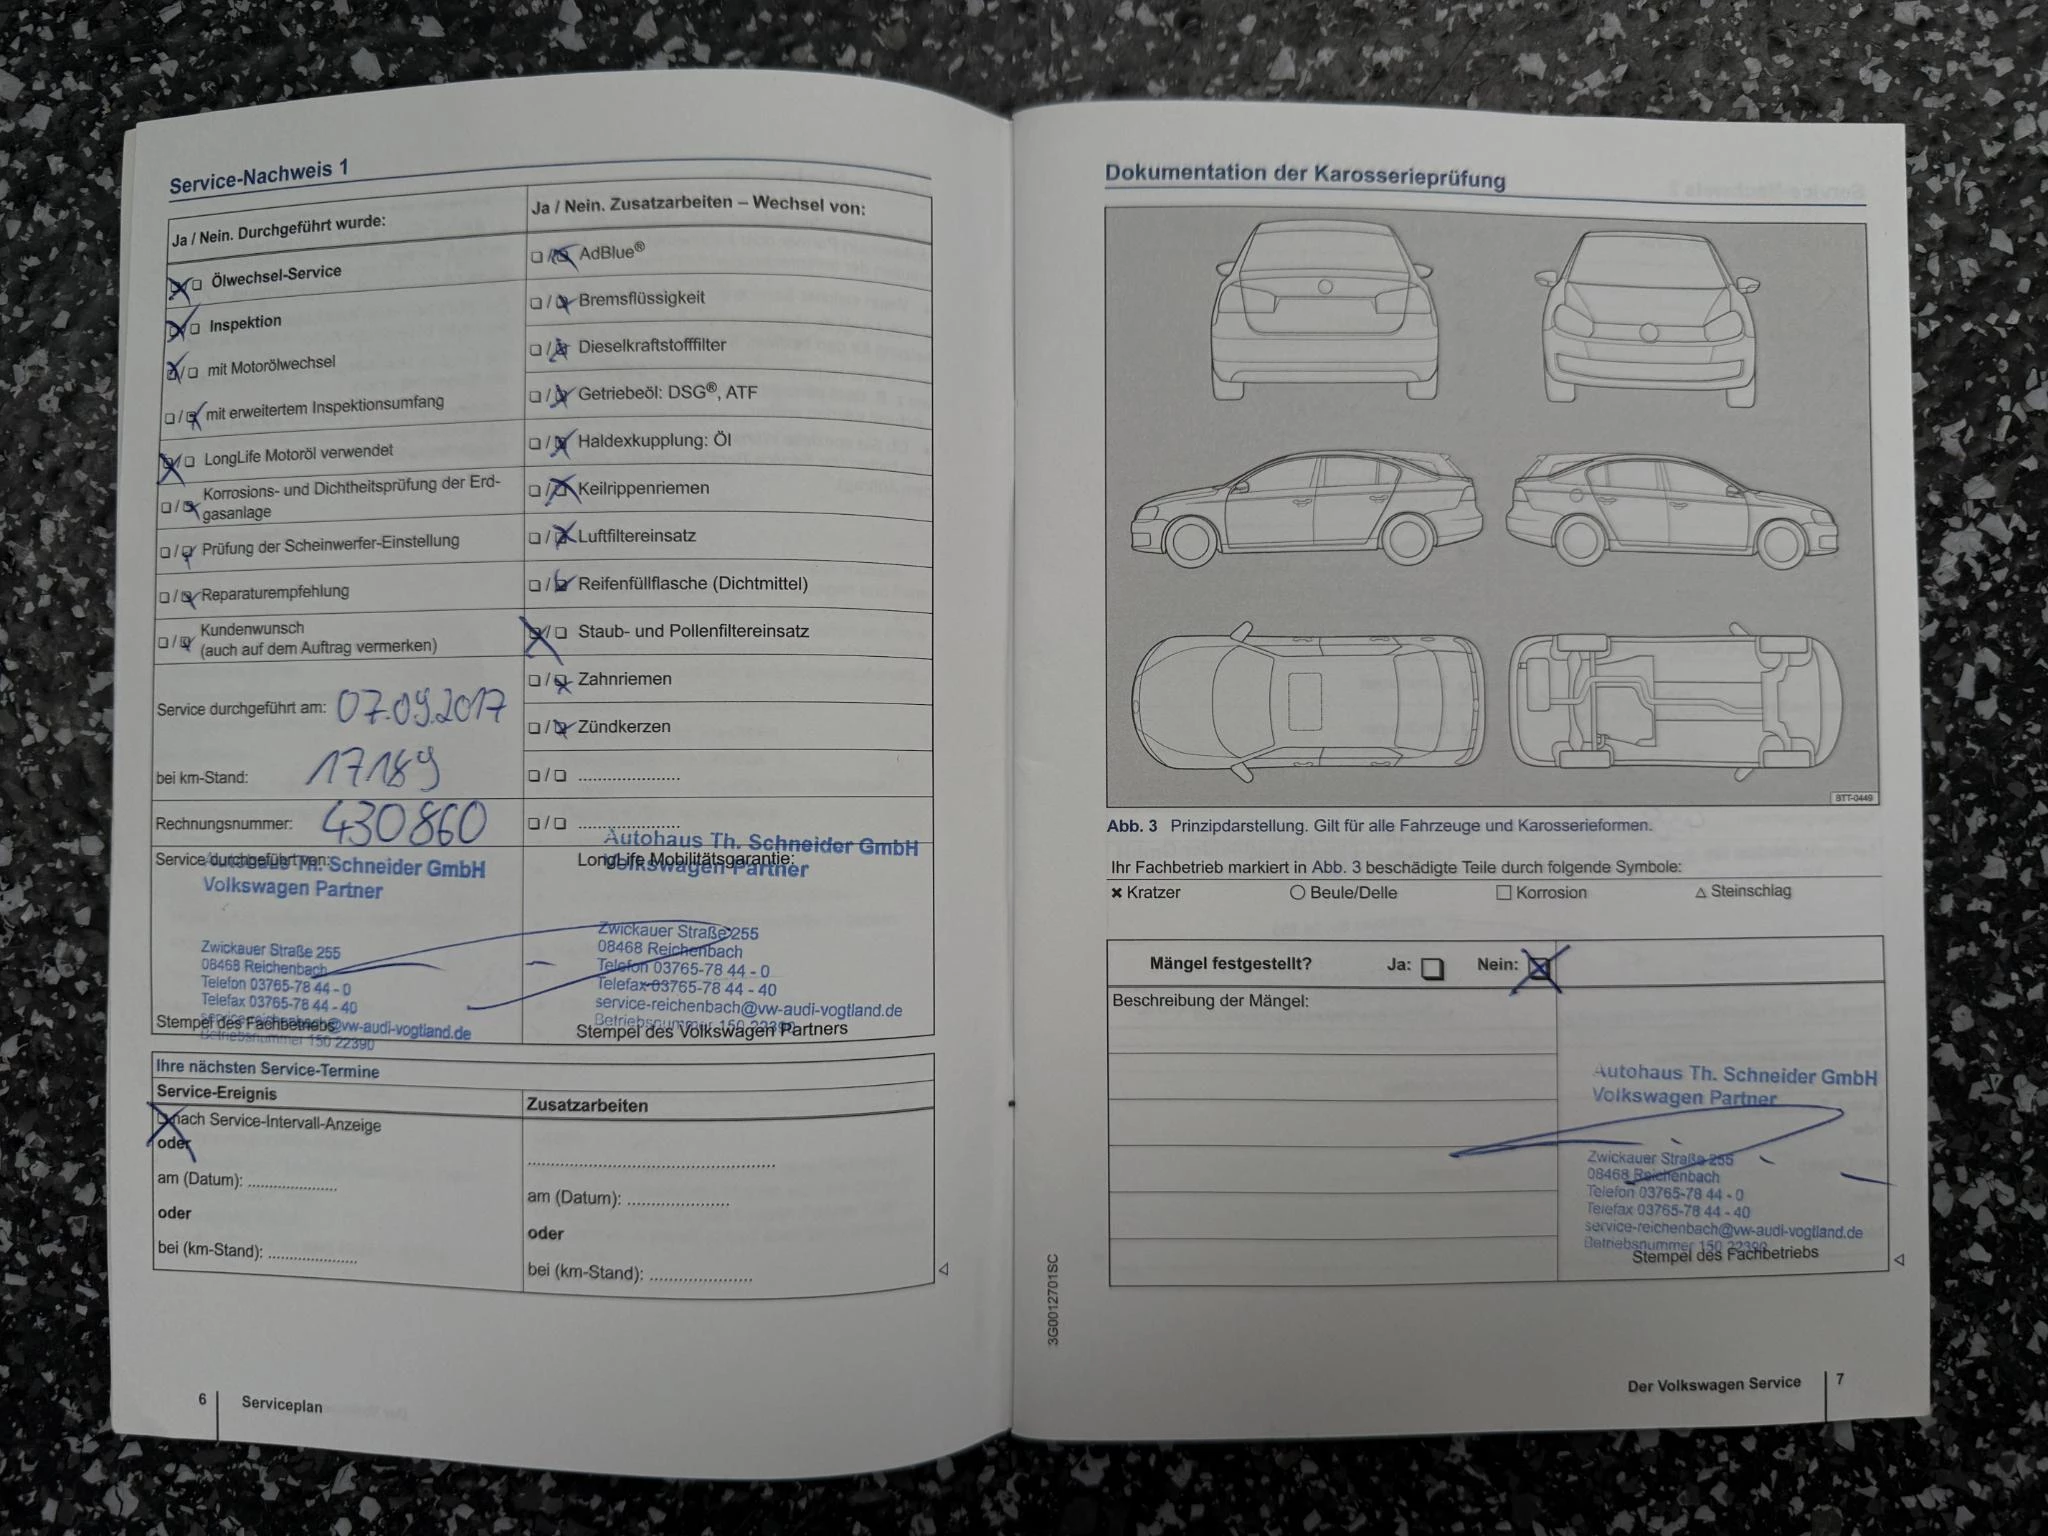 Service-Nachweis 1
Ja / Nein. Durchgeführt wurde:
Ölwechsel-Service
Inspektion
mit Motorölwechsel
mit erweitertem Inspektionsumfang
LongLife Motoröl verwendet
Korrosions- und Dichtheitsprüfung der Erd-
gasanlage
Prüfung der Scheinwerfer-Einstellung
Reparaturempfehlung
Kundenwunsch
(auch auf dem Auftrag vermerken)
Service durchgeführt am: 07.09.2017
bei km-Stand: 17189
Rechnungsnummer: 430860
Service durchgeführt von:
Autohaus Th. Schneider GmbH
Volkswagen Partner
Zwickauer Straße 255
08468 Reichenbach
Telefon 03765-78 44 - 0
Telefax 03765-78 44 - 40
service-reichenbach@vw-audi-vogtland.de
Betriebsnummer 150 22390
Stempel des Fachbetriebs
Ja / Nein. Zusatzarbeiten – Wechsel von:
AdBlue®
Bremsflüssigkeit
Dieselkraftstofffilter
Getriebeöl: DSG®, ATF
Haldexkupplung: Öl
Keilrippenriemen
Luftfiltereinsatz
Reifenfüllflasche (Dichtmittel)
Staub- und Pollenfiltereinsatz
Zahnriemen
Zündkerzen
Autohaus Th. Schneider GmbH
LongLife Mobilitätsgarantie:
Volkswagen Partner
Zwickauer Straße 255
08468 Reichenbach
Telefon 03765-78 44 - 0
Telefax 03765-78 44 - 40
service-reichenbach@vw-audi-vogtland.de
Betriebsnummer 150 22390
Stempel des Volkswagen Partners
Ihre nächsten Service-Termine
Service-Ereignis
nach Service-Intervall-Anzeige
oder
am (Datum): .....................
oder
bei (km-Stand): .....................
Zusatzarbeiten
am (Datum): .....................
oder
bei (km-Stand): .....................
6 Serviceplan
Dokumentation der Karosserieprüfung
BTT-0449
Abb. 3 Prinzipdarstellung. Gilt für alle Fahrzeuge und Karosserieformen.
Ihr Fachbetrieb markiert in Abb. 3 beschädigte Teile durch folgende Symbole:
Kratzer Beule/Delle Korrosion Steinschlag
Mängel festgestellt? Ja: Nein:
Beschreibung der Mängel:
Autohaus Th. Schneider GmbH
Volkswagen Partner
Zwickauer Straße 255
08468 Reichenbach
Telefon 03765-78 44 - 0
Telefax 03765-78 44 - 40
service-reichenbach@vw-audi-vogtland.de
Betriebsnummer 150 22390
Stempel des Fachbetriebs
3G0012701SC
Der Volkswagen Service 7